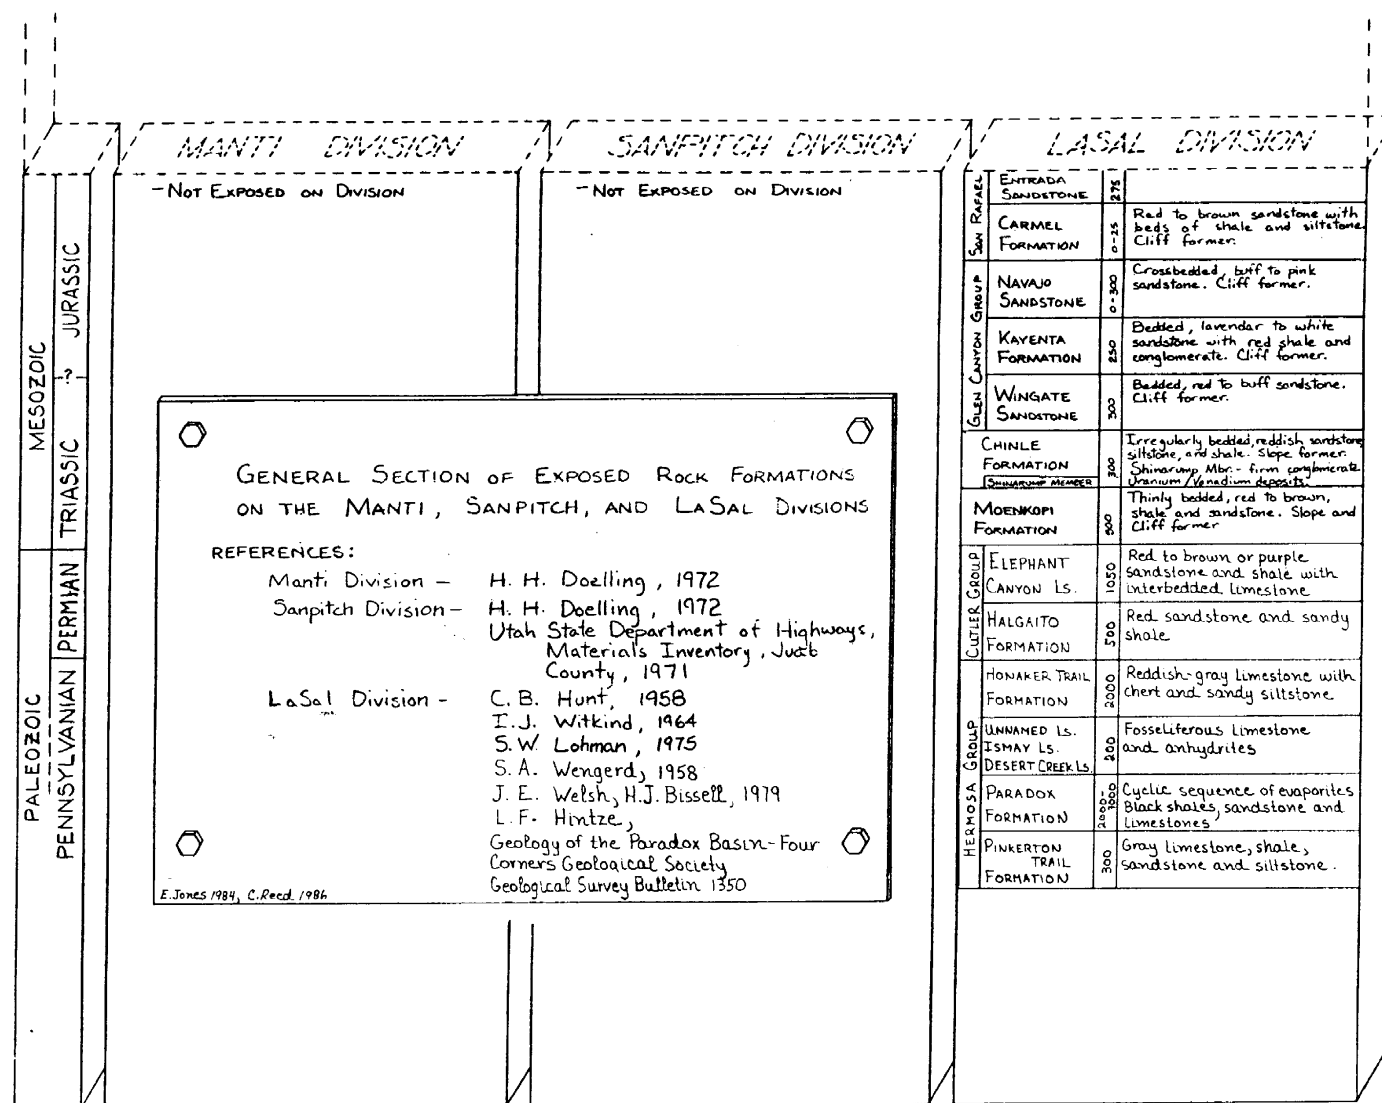 MANTI DIVISION
SANPITCH DIVISION
LASAL DIVISION
- NOT EXPOSED ON DIVISION
- NOT EXPOSED ON DIVISION
MESOZOIC
JURASSIC
-?-
TRIASSIC
PALEOZOIC
PERMIAN
PENNSYLVANIAN
GENERAL SECTION OF EXPOSED ROCK FORMATIONS
ON THE MANTI, SANPITCH, AND LASAL DIVISIONS
REFERENCES:
Manti Division - H. H. Doelling, 1972
Sanpitch Division - H. H. Doelling, 1972
Utah State Department of Highways,
Materials Inventory, Juab
County, 1971
LaSal Division - C. B. Hunt, 1958
I. J. Witkind, 1964
S. W. Lohman, 1975
S. A. Wengerd, 1958
J. E. Welsh, H. J. Bissell, 1979
L. F. Hintze,
Geology of the Paradox Basin - Four
Corners Geological Society
Geological Survey Bulletin 1350
E. Jones 1984, C. Reed 1986
SAN RAFAEL
ENTRADA
SANDSTONE
275
CARMEL
FORMATION
0-25
Red to brown sandstone with
beds of shale and siltstone.
Cliff former.
GLEN CANYON GROUP
NAVAJO
SANDSTONE
0-300
Crossbedded, buff to pink
sandstone. Cliff former.
KAYENTA
FORMATION
250
Bedded, lavendar to white
sandstone with red shale and
conglomerate. Cliff former.
WINGATE
SANDSTONE
300
Bedded, red to buff sandstone.
Cliff former.
CHINLE
FORMATION
SHINARUMP MEMBER
300
Irregularly bedded, reddish sandstone,
siltstone, and shale. Slope former.
Shinarump Mbr. - firm conglomerate
Uranium/Vanadium deposits.
MOENKOPI
FORMATION
500
Thinly bedded, red to brown,
shale and sandstone. Slope and
Cliff former
CUTLER GROUP
ELEPHANT
CANYON LS.
1050
Red to brown or purple
sandstone and shale with
interbedded limestone
HALGAITO
FORMATION
500
Red sandstone and sandy
shale
HERMOSA GROUP
HONAKER TRAIL
FORMATION
2000
Reddish-gray limestone with
chert and sandy siltstone
UNNAMED LS.
ISMAY LS.
DESERT CREEK LS.
200
Fosseliferous limestone
and anhydrites
PARADOX
FORMATION
2000-
7000
Cyclic sequence of evaporites
Black shales, sandstone and
limestones
PINKERTON
TRAIL
FORMATION
300
Gray limestone, shale,
sandstone and siltstone.